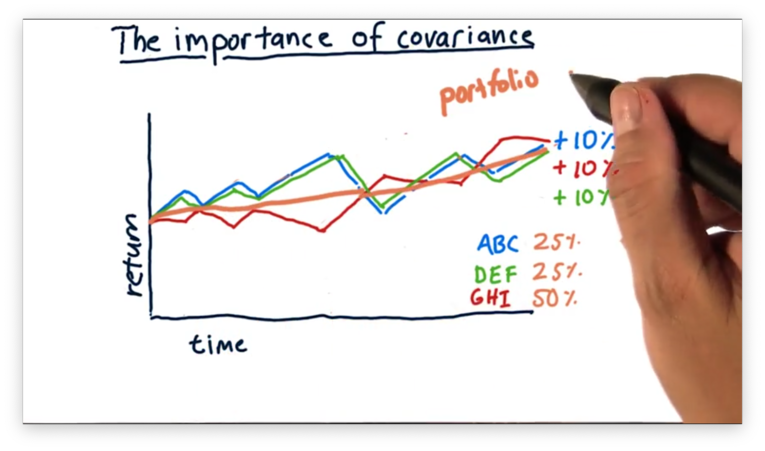 The importance of covariance
portfolio
+10%
+10%
+10%
return
ABC 25%.
DEF 25%.
GHI 50%.
time